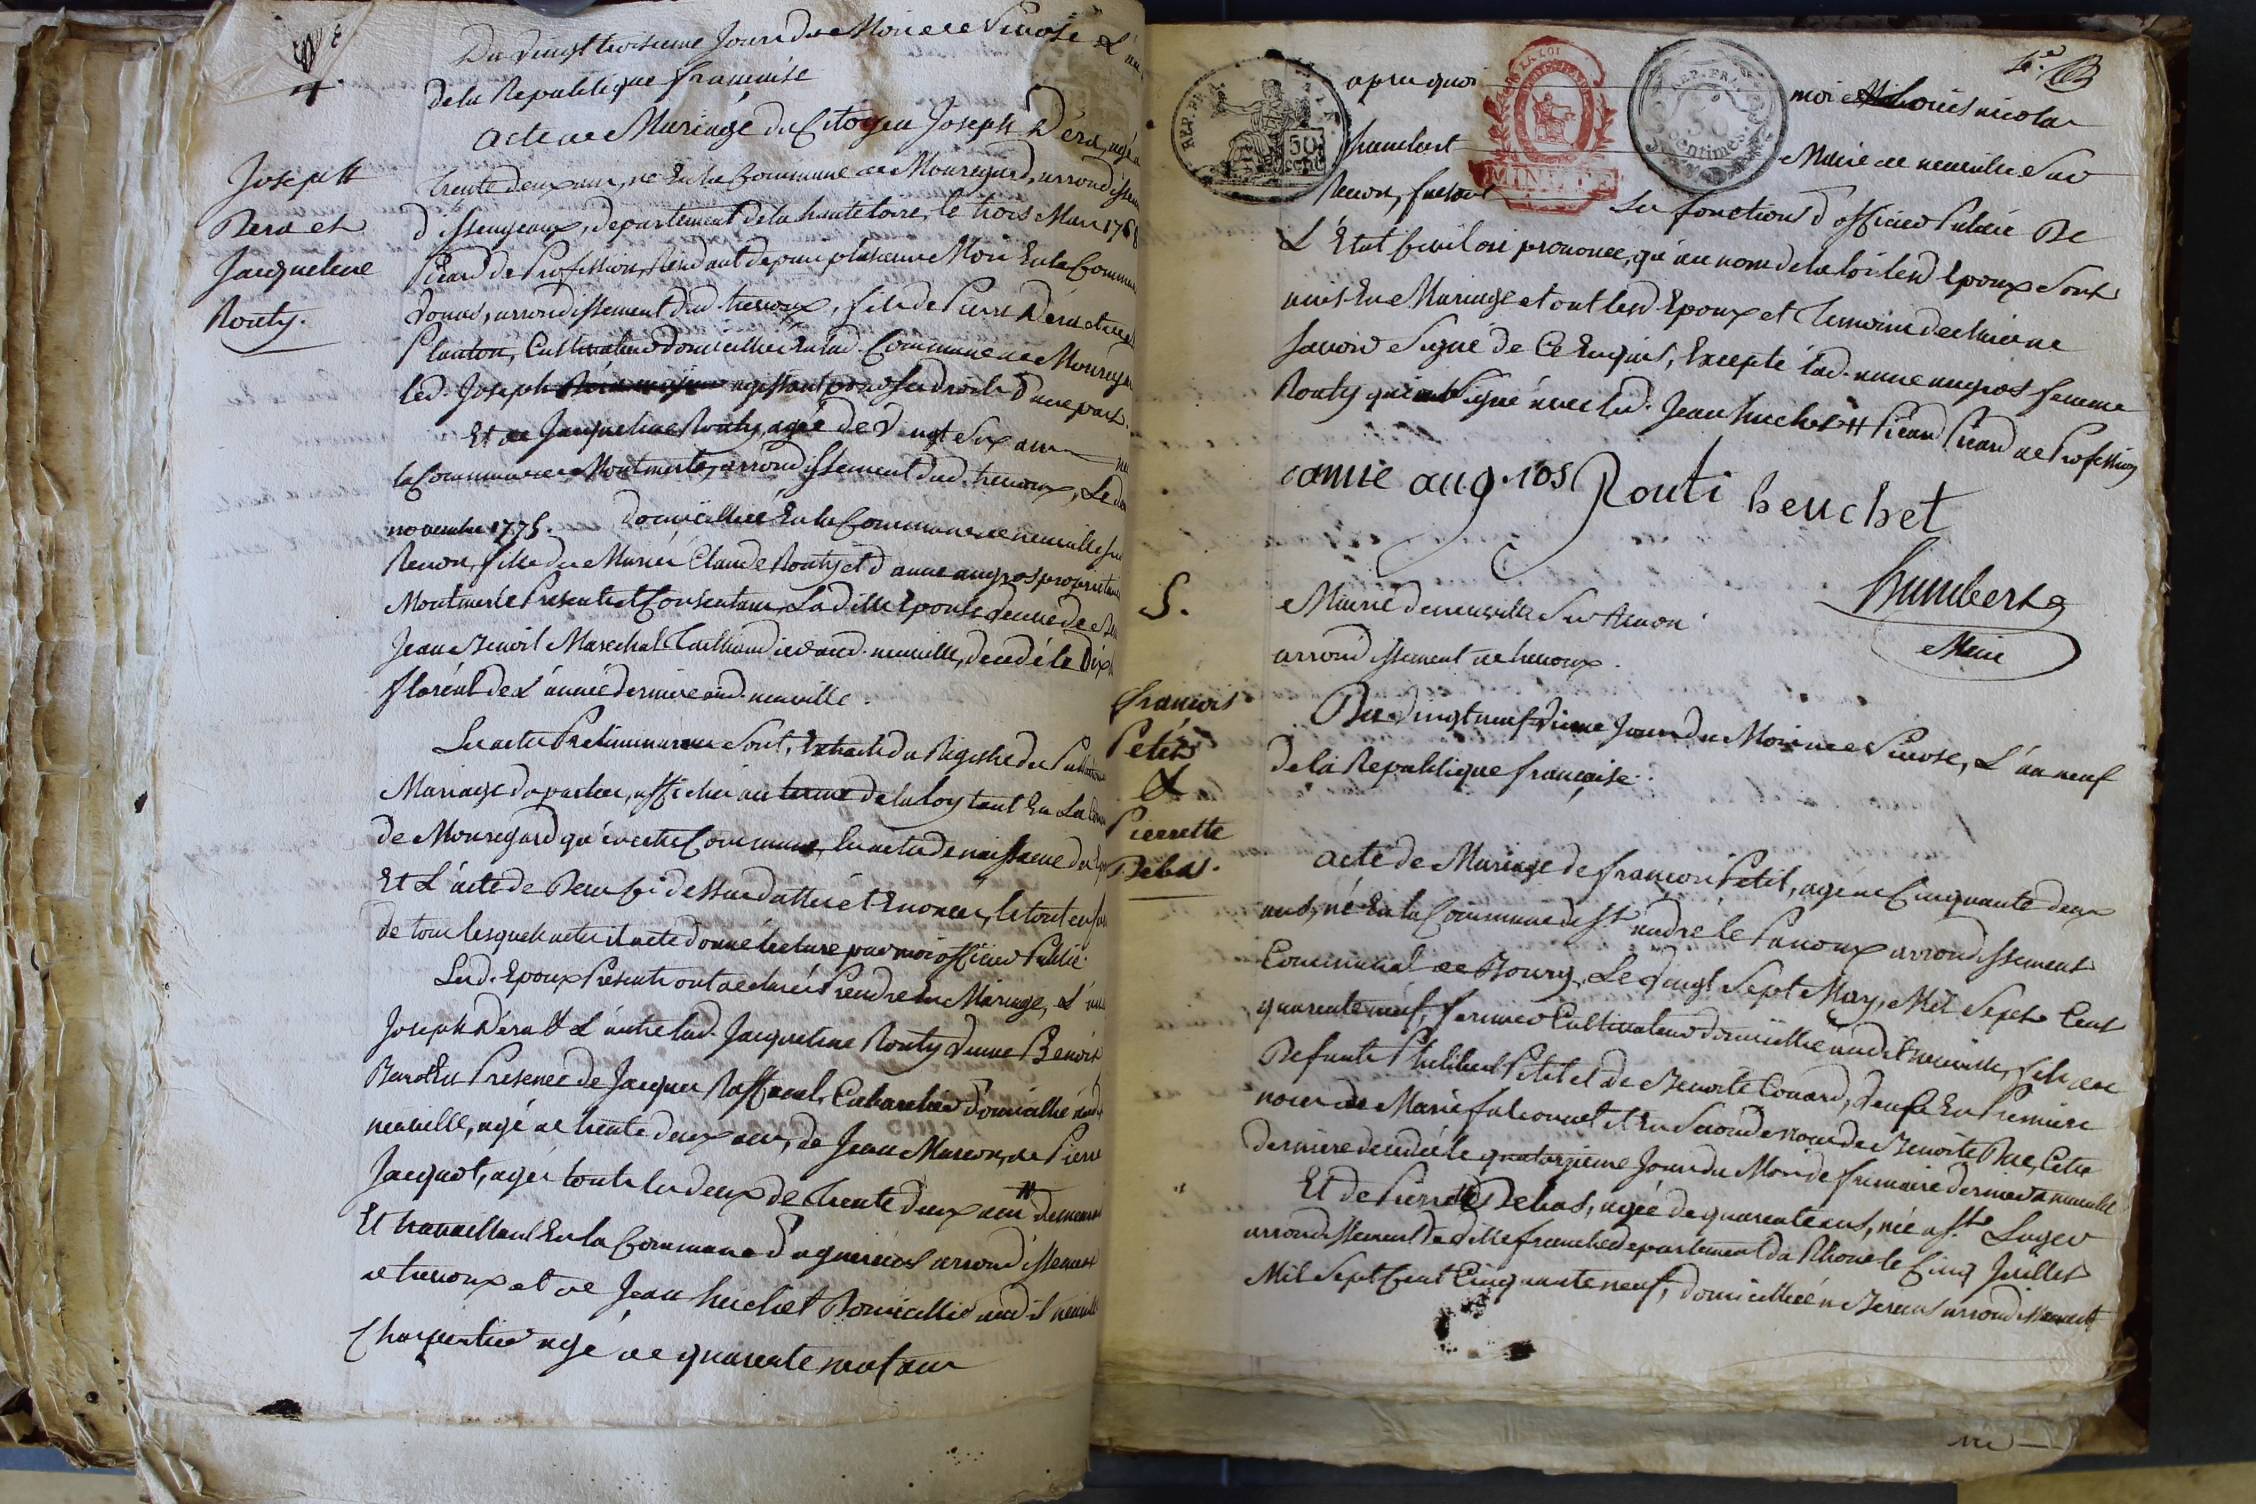 4
Du vingt troisieme Jour du Mois de Nivose L'an
de la Republique française
Joseph
Dera et
Jacqueline
Routy.
acte de Mariage du Citoyen Joseph Déra, agé de
trente deux ans, né En la Commune de Mouregard, arrondissem
d'issengeaux, departement de la haute loire, le trois Mars 1768
Picard de Profession, Residant depuis plusieurs Mois En la Commune
arrondissement dud. trevoux, fils de Pierre Déra et de
Planton, Cultivateurs domiciliés En lad. Commune de Mouregard
led. Joseph agissant pour ses droits d'une part.
Et de Jacqueline Routy, agée de Vingt Six ans née
la Commune de Montmerle, arrondissement dud. trevoux, Le
novembre 1775. domiciliée En la Commune de neuville sur
Renon, fille de Claude Routy et d'anne augros proprietaires
Montmerle Presents et Consentans, La ditte Epouse Veuve de
Jean Benoit Marechal Taillandier aud. neuville, decedé le Dix
floréal de L'année derniere aud. neuville.
Les actes Preliminaires Sont, Extraits du Registre des Publications
Mariage des parties, affichés aux termes de la loy tant En La Com
de Mouregard qu'en cette Commune, les actes de naissance des Ep
Et L'acte de Deces Ci dessus dattés et Enoncés, le tout en forme
de tous lesquels actes il a eté donné lecture par moi officier Public.
Lesd. Epoux Presents ont declaré Prendre En Mariage, L'un
Joseph Déra Et L'autre lad. Jacqueline Routy Veuve Benoit
En Presence de Jacques Cabaretier domicilié aud
neuville, agé de trente deux ans, de Jean Marcon, de Pierre
Jacquet, agés touts les deux de trente deux ans # demeurant
Et travaillant En la Commune d'agnereins arrondissement
de trevoux et de Jean huchet Domicilié audit neuville
Charpentier agé de quarante neuf ans
4.e
REP. FR. 50 CENT.
LA LOI
MINUTE
REP. FR. 50 Centimes
apres quoi moi Louis nicolas
humbert Maire de neuville Sur
Renon, faisant Les fonctions d'officier Public De
L'Etat Civil ai prononcé, qu'au nom de la loi lesd Epoux Sont
unis En Mariage et ont lesd Epoux et Temoins declaré ne
Savoir Signé de Ce Enquis, Excepté lad. anne augros femme
Routy qui ont Signé avec led. Jean huchet # Picard de Profession
annie augros Routi heuchet
humbert
Maire
5.
Mairie de neuville Sur Renon
arrondissement de trevoux.
françois
Petit
&
Pierrette
Debas.
Du Vingt neuf vieme Jour du Mois de Nivose, L'an neuf
de la Republique française.
acte de Mariage de françois Petit, agé de Cinquante deux
ans, né En la Commune de St. andré le Panoux arrondissement
Communal de Bourg, Le Vingt Sept May, Mil Sept Cent
quarente neuf, fermier Cultivateur domicilié audit neuville, fils de
Defunts Philibert Petit et de Benoite Conard, Veuf En Premiere
noces de Marie falconnet et En Seconde noces de Benoite Cette
derniere decedée le quatorzieme Jour du Mois de frimaire dernier a neuville
Et de Pierrette Debas, agée de quarente ans, née a St. Lager
arrondissement de Villefranche departement du Rhone le Cinq Juillet
Mil Sept Cent Cinquante neuf, domiciliée a arrondissement